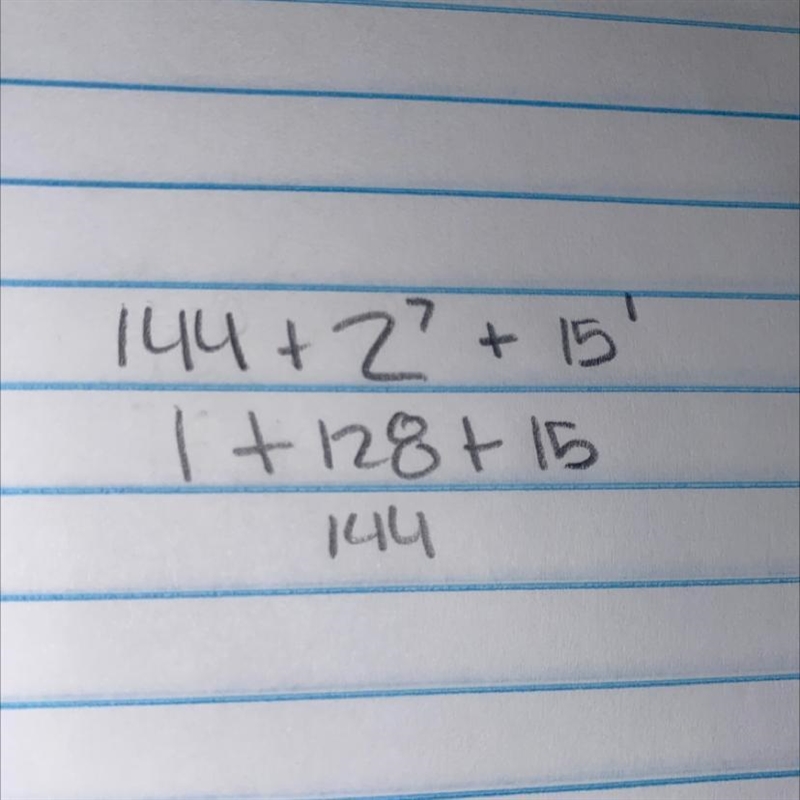 144 + 2⁷ + 15¹
1 + 128 + 15
144